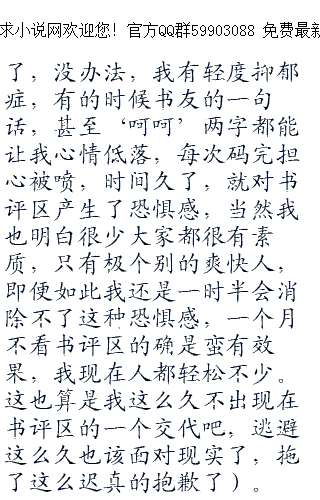 求小说网欢迎您！官方QQ群59903088 免费最新
了，没办法，我有轻度抑郁
症，有的时候书友的一句
话，甚至‘呵呵’两字都能
让我心情低落，每次码完担
心被喷，时间久了，就对书
评区产生了恐惧感，当然我
也明白很少大家都很有素
质，只有极个别的爽快人，
即便如此我还是一时半会消
除不了这种恐惧感，一个月
不看书评区的确是蛮有效
果，我现在人都轻松不少。
这也算是我这么久不出现在
书评区的一个交代吧，逃避
这么久也该面对现实了，拖
了这么迟真的抱歉了）。